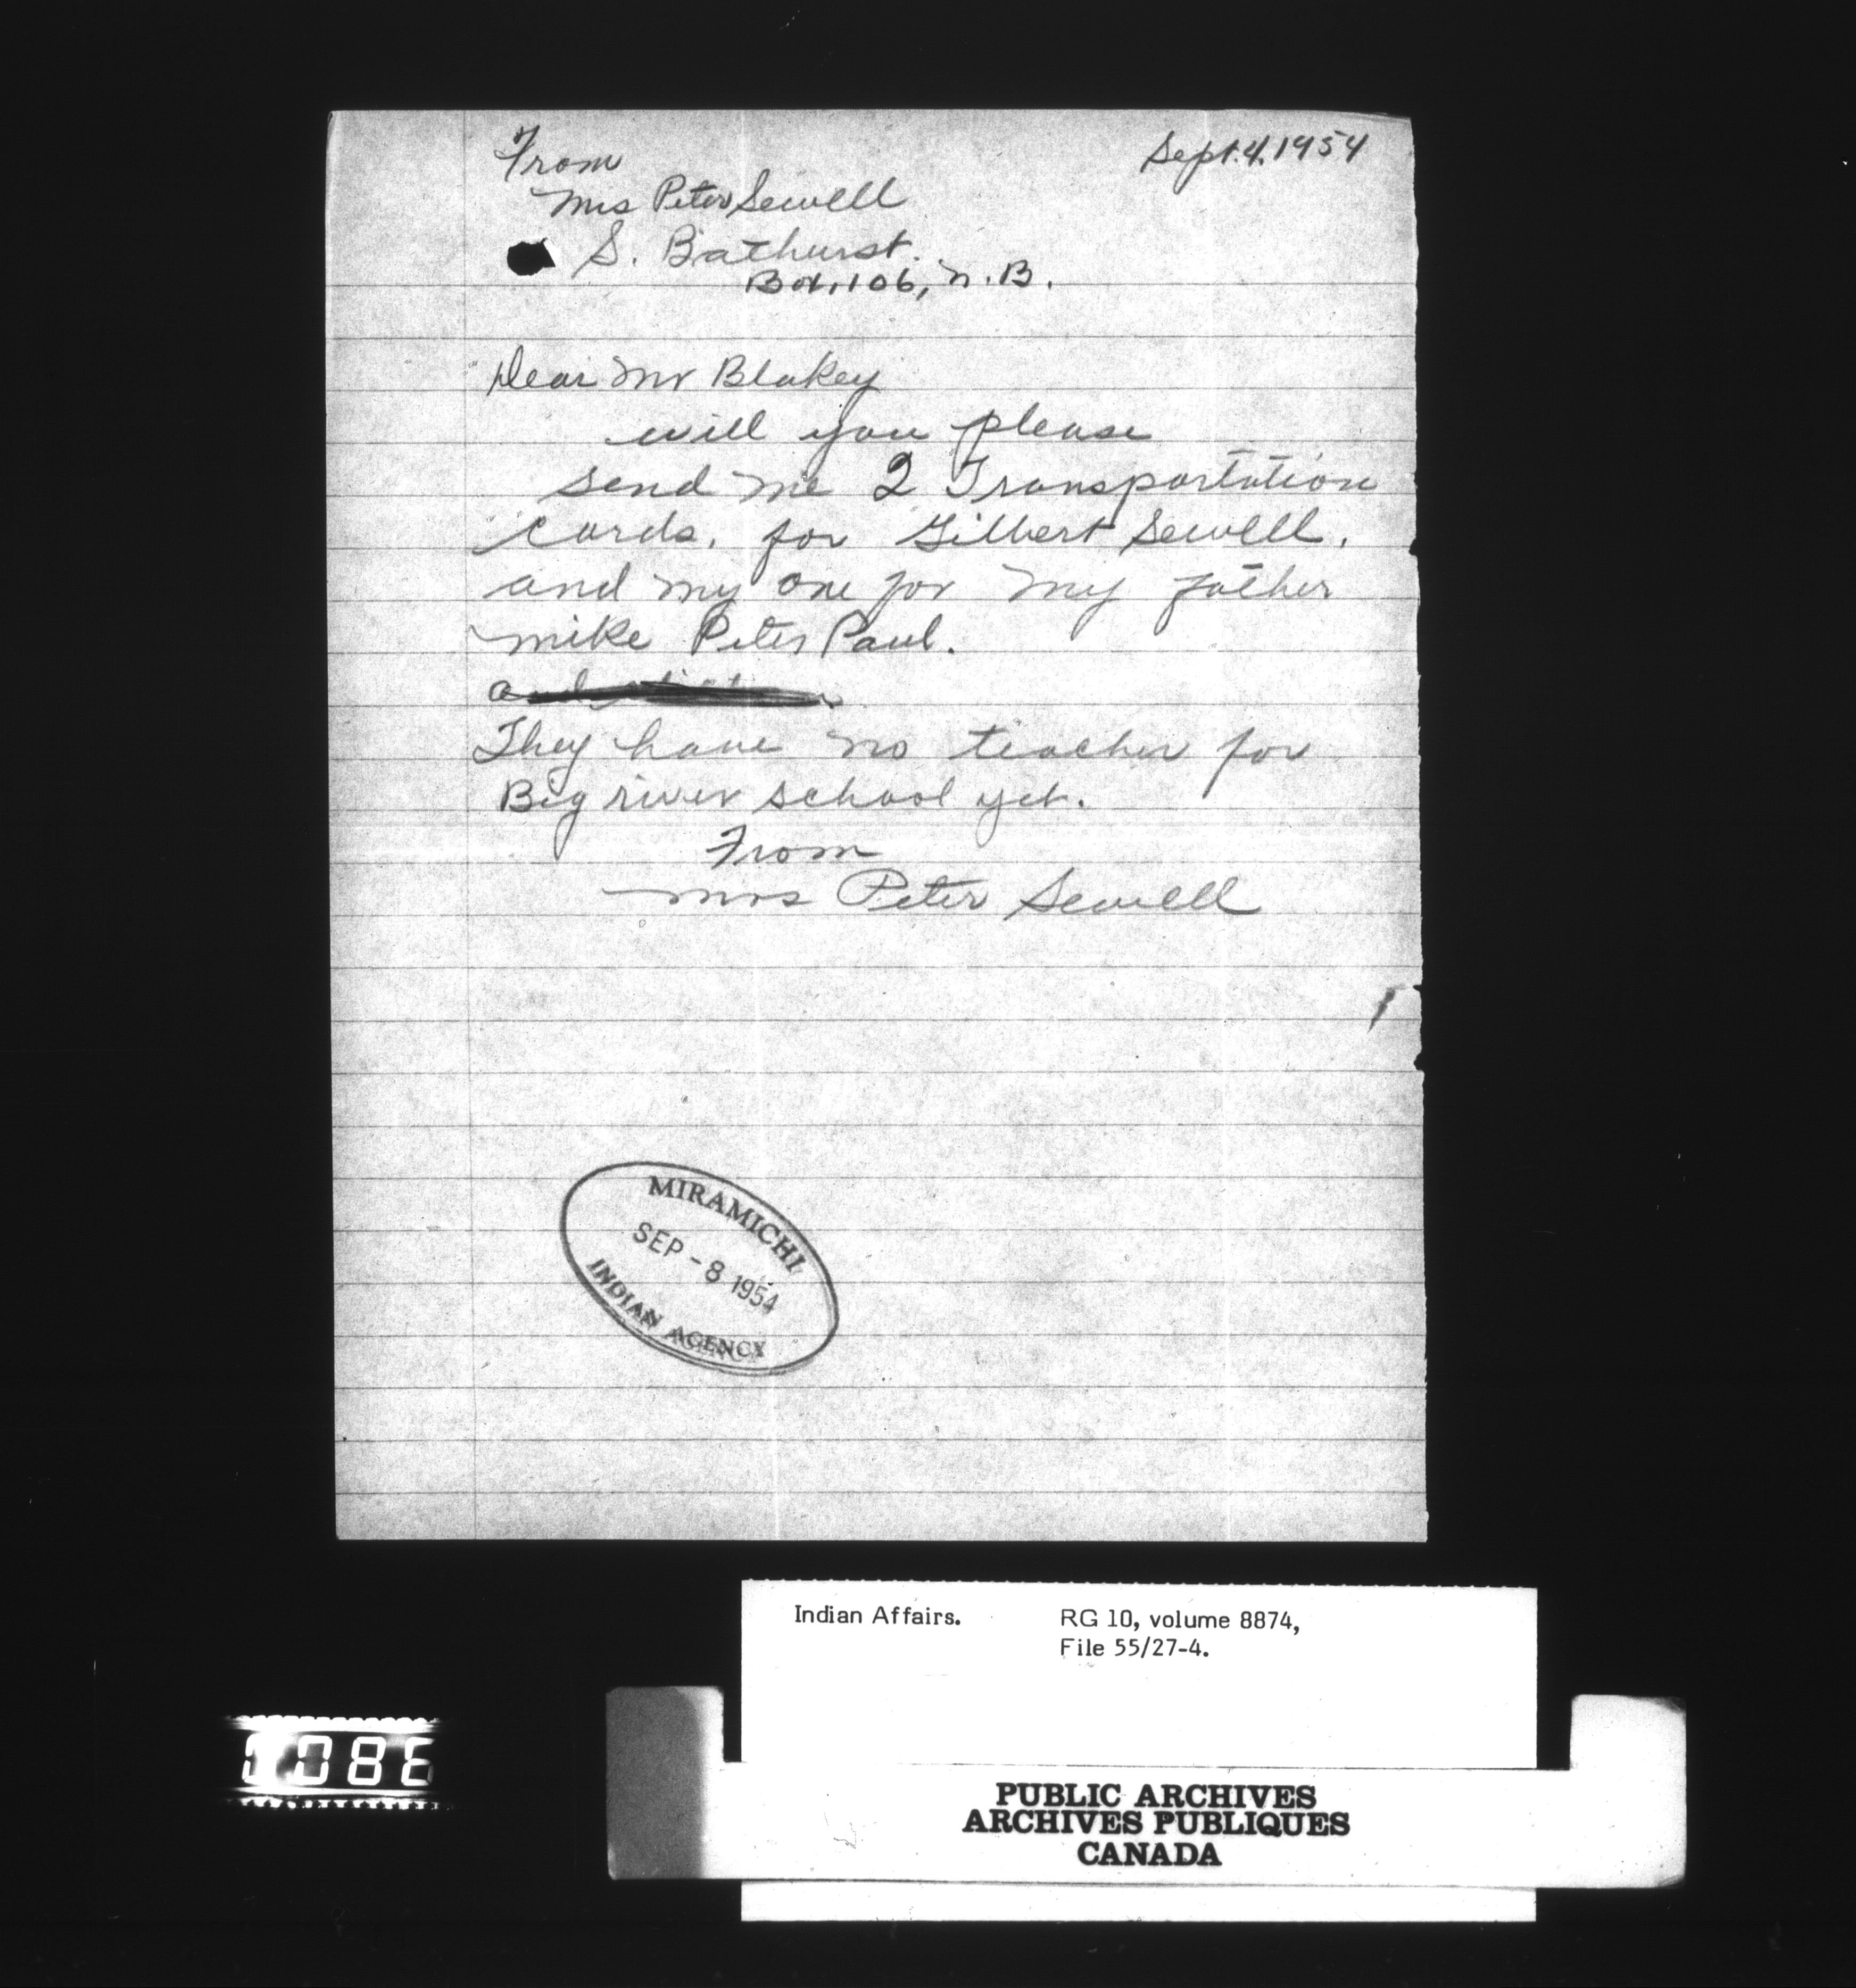 From
Sept. 4, 1954
Mrs Peter Sewell
S. Bathurst.
Box, 106, N.B.
Dear Mr Blakey
will you please
send me 2 Transportation
cards, for Gilbert Sewell.
and my one for my father
mike Peter Paul.
and
They have no teacher for
Big river school yet.
From
Mrs Peter Sewell
MIRAMICHI
SEP - 8 1954
INDIAN AGENCY
Indian Affairs. RG 10, volume 8874,
File 55/27-4.
PUBLIC ARCHIVES
ARCHIVES PUBLIQUES
CANADA